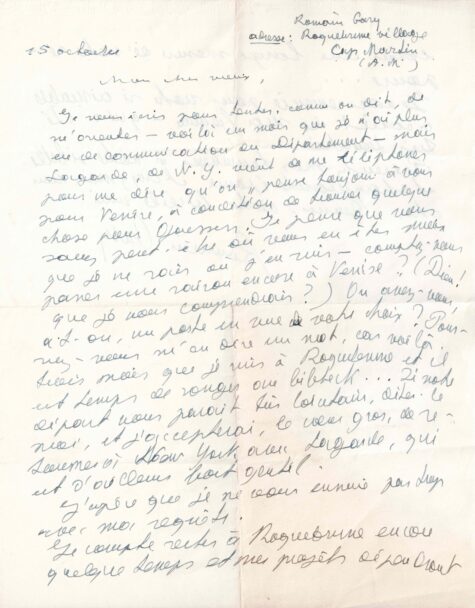 Romain Gary
adresse: Roquebrune village
Cap Martin
(A. M.)
15 octobre
Mon cher
Je vous écris pour tenter, comme on dit, de
m'orienter – voilà un mois que je n'ai plus
eu de communication du Département – mais
Lagarde, de N.Y. vient de me téléphoner
pour me dire qu'on "pense toujours à vous
pour Venise, à condition de trouver quelque
chose pour Je pense que vous
savez peut-être où vous en êtes mieux
que je ne sais où j'en suis – comptez-vous
passer une saison encore à Venise? (Dieu!
que je vous comprendrais!) Ou avez-vous,
a-t-on, un poste en vue de votre choix? Pour-
riez-vous m'en dire un mot, car voilà
trois mois que je suis à Roquebrune et il
est temps de ronger un bifteck... Si votre
départ vous paraît très lointain, dites-le
moi, et j'accepterai, le cœur gros, de re-
tourner à New York avec Lagarde, qui
est d'ailleurs fort gentil.
J'espère que je ne vous ennuie pas trop
avec mes regrets.
Je compte rester à Roquebrune encore
quelque temps et mes projets dépendront